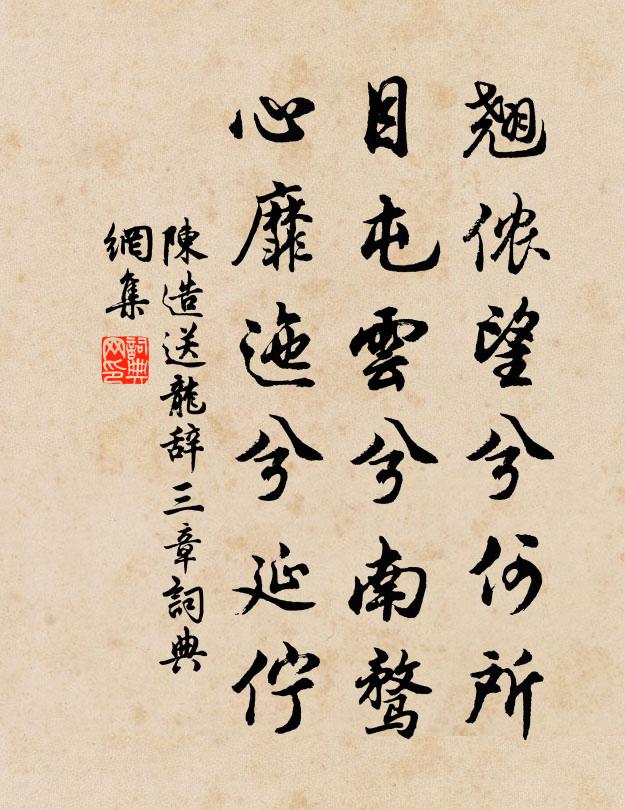 翘侬望兮何所
目屯雲兮南鹜
心靡迤兮延佇
陳造送龍辞三章詞典
網集
詞典
网印